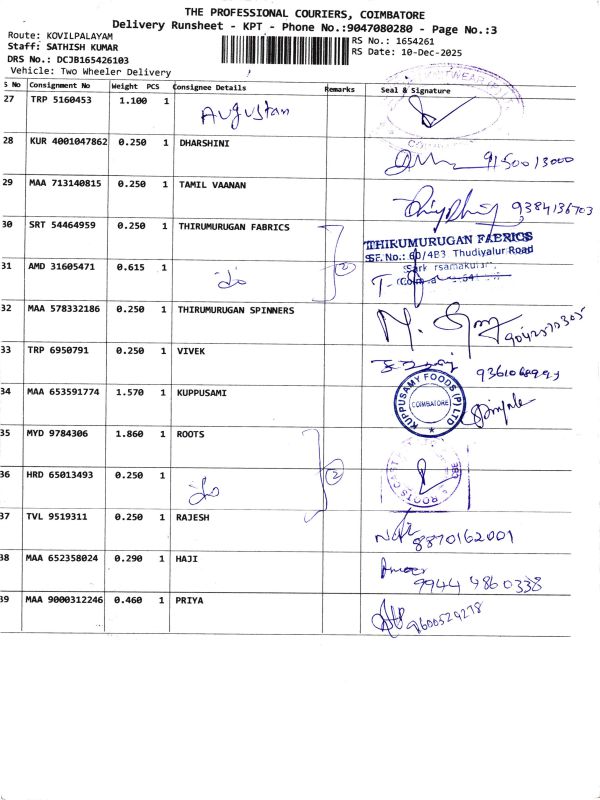 THE PROFESSIONAL COURIERS, COIMBATORE
Delivery Runsheet - KPT - Phone No.:9047080280 - Page No.:3
Route: KOVILPALAYAM
Staff: SATHISH KUMAR
DRS No.: DCJB165426103
Vehicle: Two Wheeler Delivery
RS No.: 1654261
RS Date: 10-Dec-2025
S No Consignment No Weight PCS Consignee Details Remarks Seal & Signature
27 TRP 5160453 1.100 1 Augustan
28 KUR 4001047862 0.250 1 DHARSHINI 9150013000
29 MAA 713140815 0.250 1 TAMIL VAANAN 9384136703
30 SRT 54464959 0.250 1 THIRUMURUGAN FABRICS
THIRUMURUGAN FABRICS
SF. No.: 60/4B3 Thudiyalur Road
31 AMD 31605471 0.615 1 do 2
32 MAA 578332186 0.250 1 THIRUMURUGAN SPINNERS
33 TRP 6950791 0.250 1 VIVEK
34 MAA 653591774 1.570 1 KUPPUSAMI
KUPPUSAMY FOODS (P) LTD
COIMBATORE
35 MYD 9784306 1.860 1 ROOTS
36 HRD 65013493 0.250 1 do 2
37 TVL 9519311 0.250 1 RAJESH
8870162001
38 MAA 652358024 0.290 1 HAJI
9944 4860338
39 MAA 9000312246 0.460 1 PRIYA
9600524278